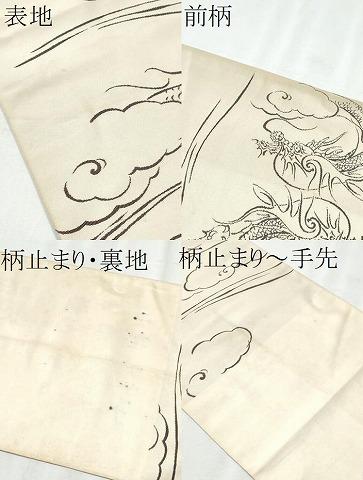 表地
前柄
柄止まり・裏地
柄止まり～手先